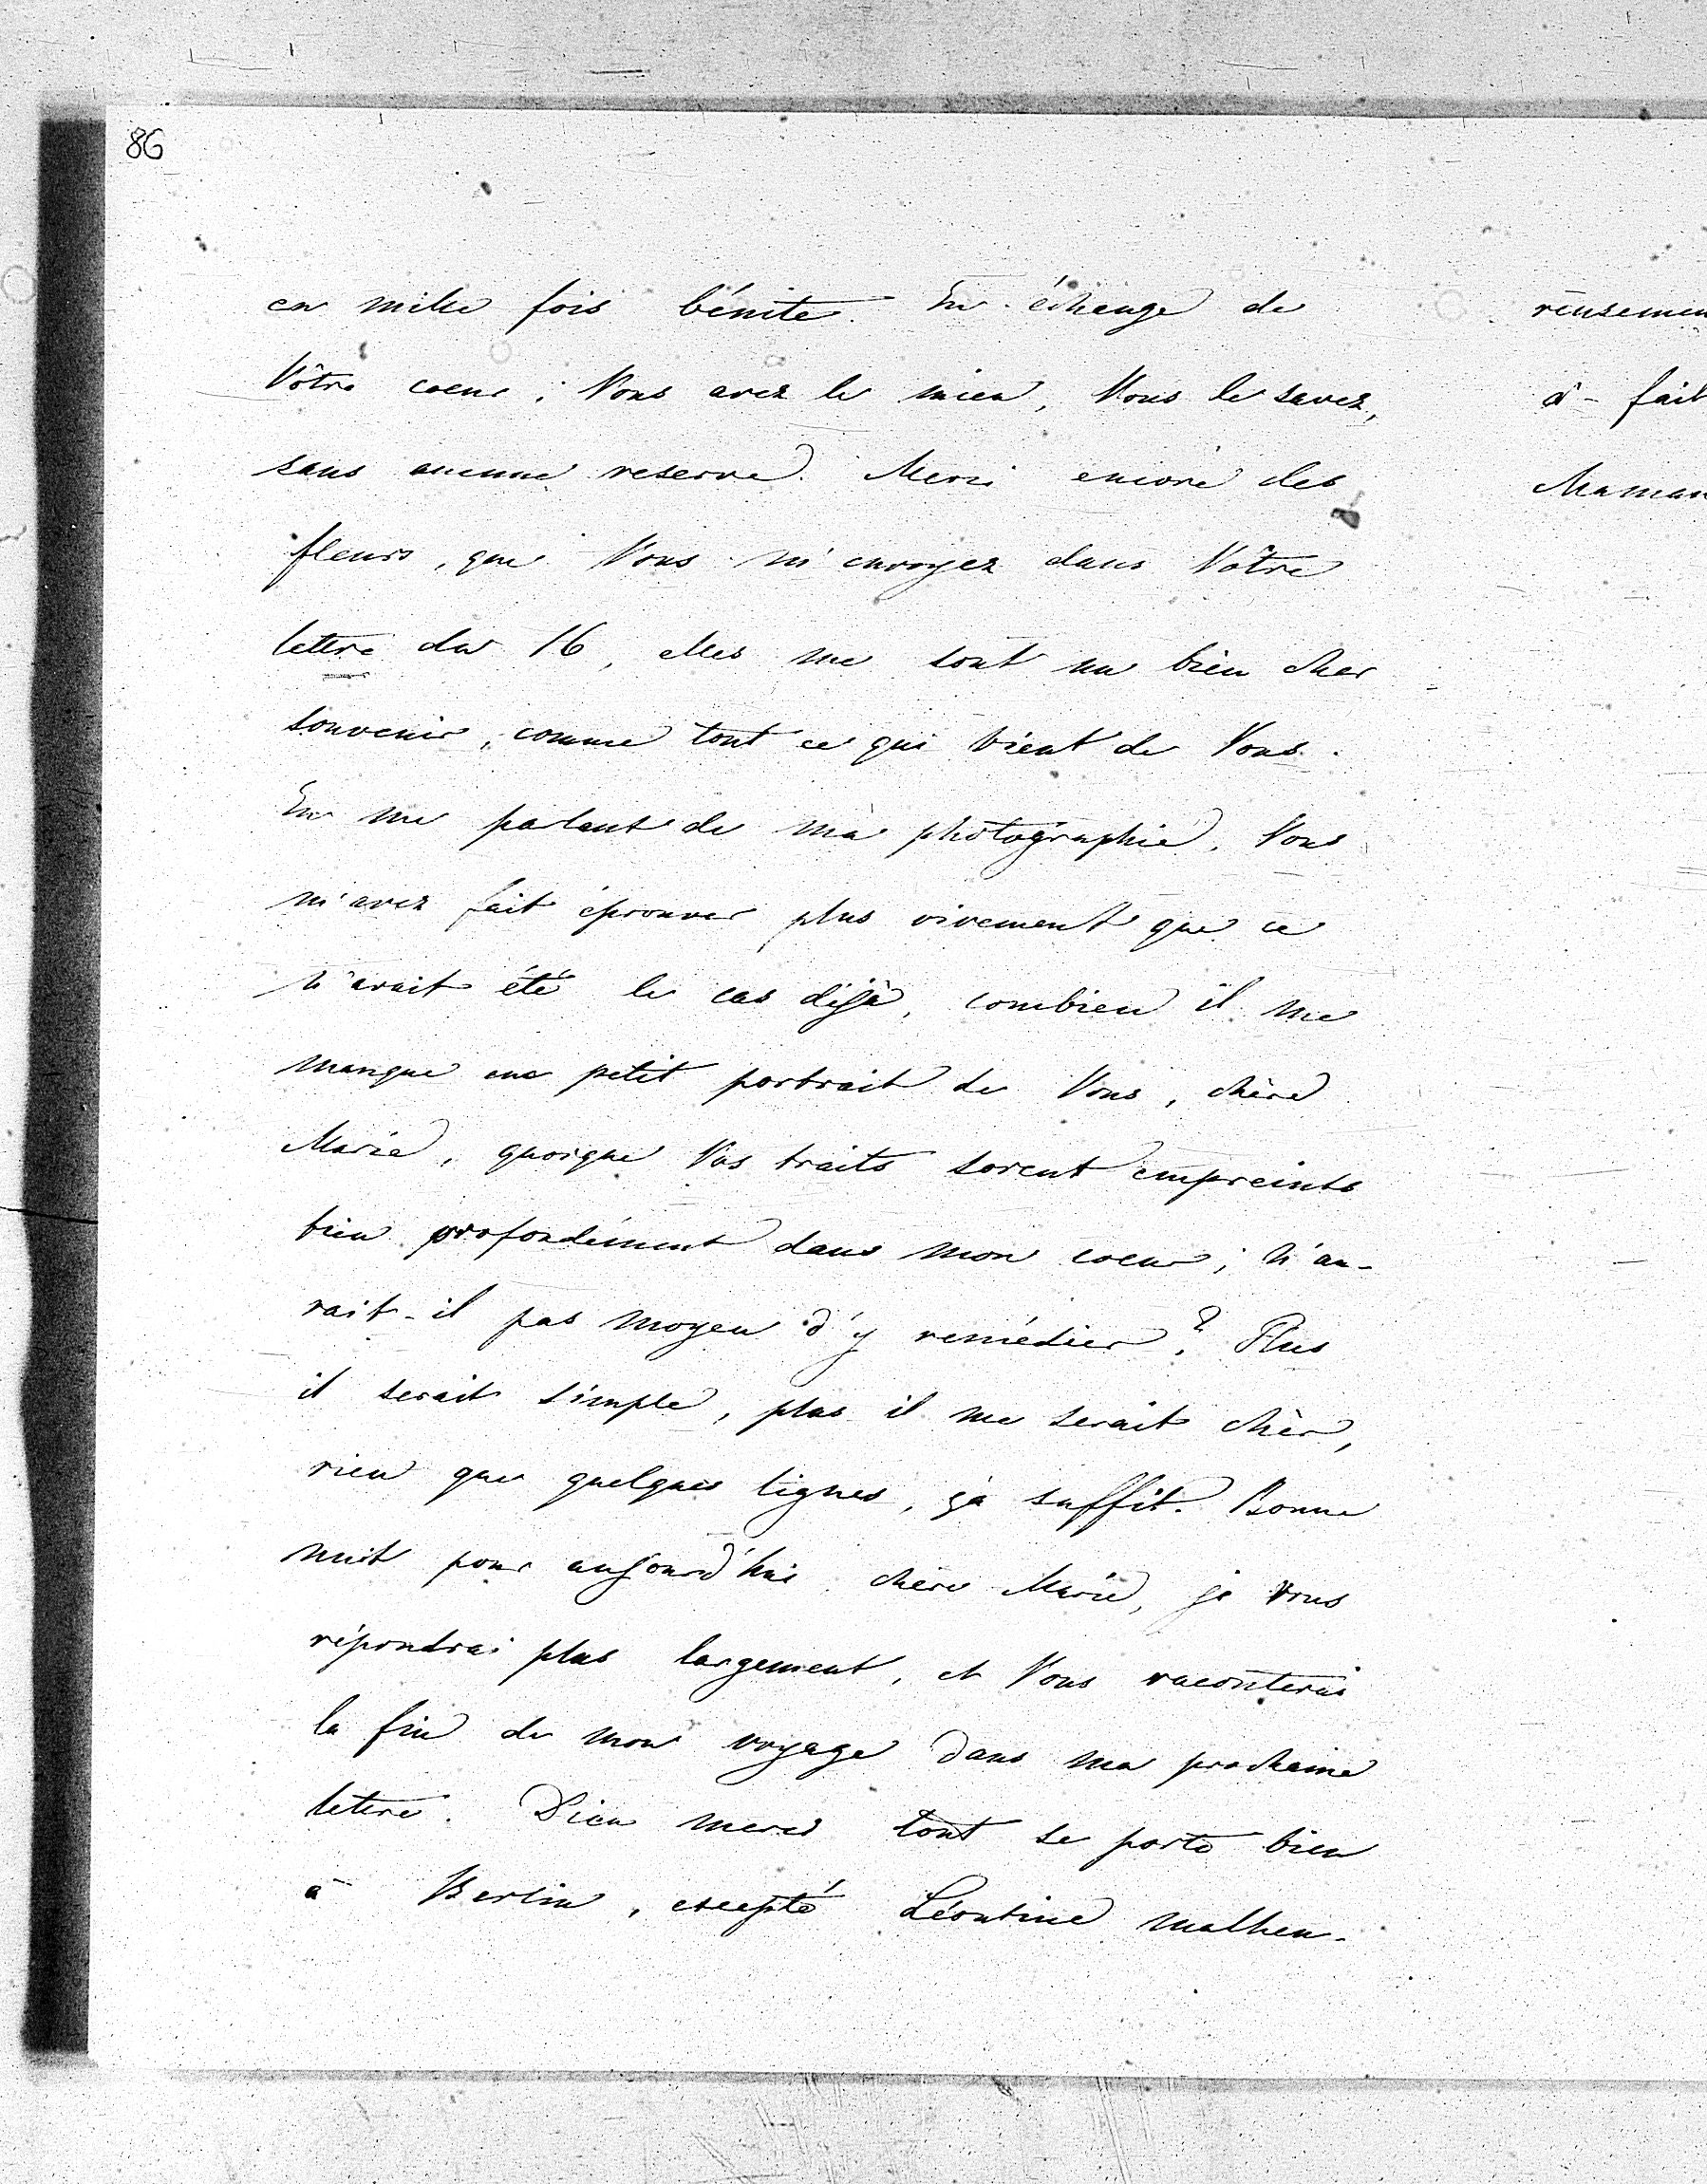 86
en mille fois bénite. En échange de
Vôtre coeur, Vous avez le mien, Vous le savez,
sans aucune reserve. Merci encore des
fleurs, que Vous m'envoyez dans Vôtre
lettre du 16, elles me sont un bien cher
souvenir, comme tout ce qui vient de Vous.
En me parlant de ma photographie, Vous
m'avez fait éprouver plus vivement que ce
n'avait été le cas déjà, combien il me
manque un petit portrait de Vous, chère
Marie, quoique Vos traits soient empreints
bien profondément dans mon coeur; n'au-
rait-il pas moyen d'y remédier? Plus
il serait simple, plus il me serait chèr,
rien que quelques lignes, ça suffit. Bonne
nuit pour aujourd'hui chère Marie, je vous
répondrai plus largement, et Vous raconterai
la fin de mon voyage dans ma prochaine
lettre. Dieu merci tout se porte bien
à Berlin, excepté Léontine malheu-
reusemen
à-fait
Maman